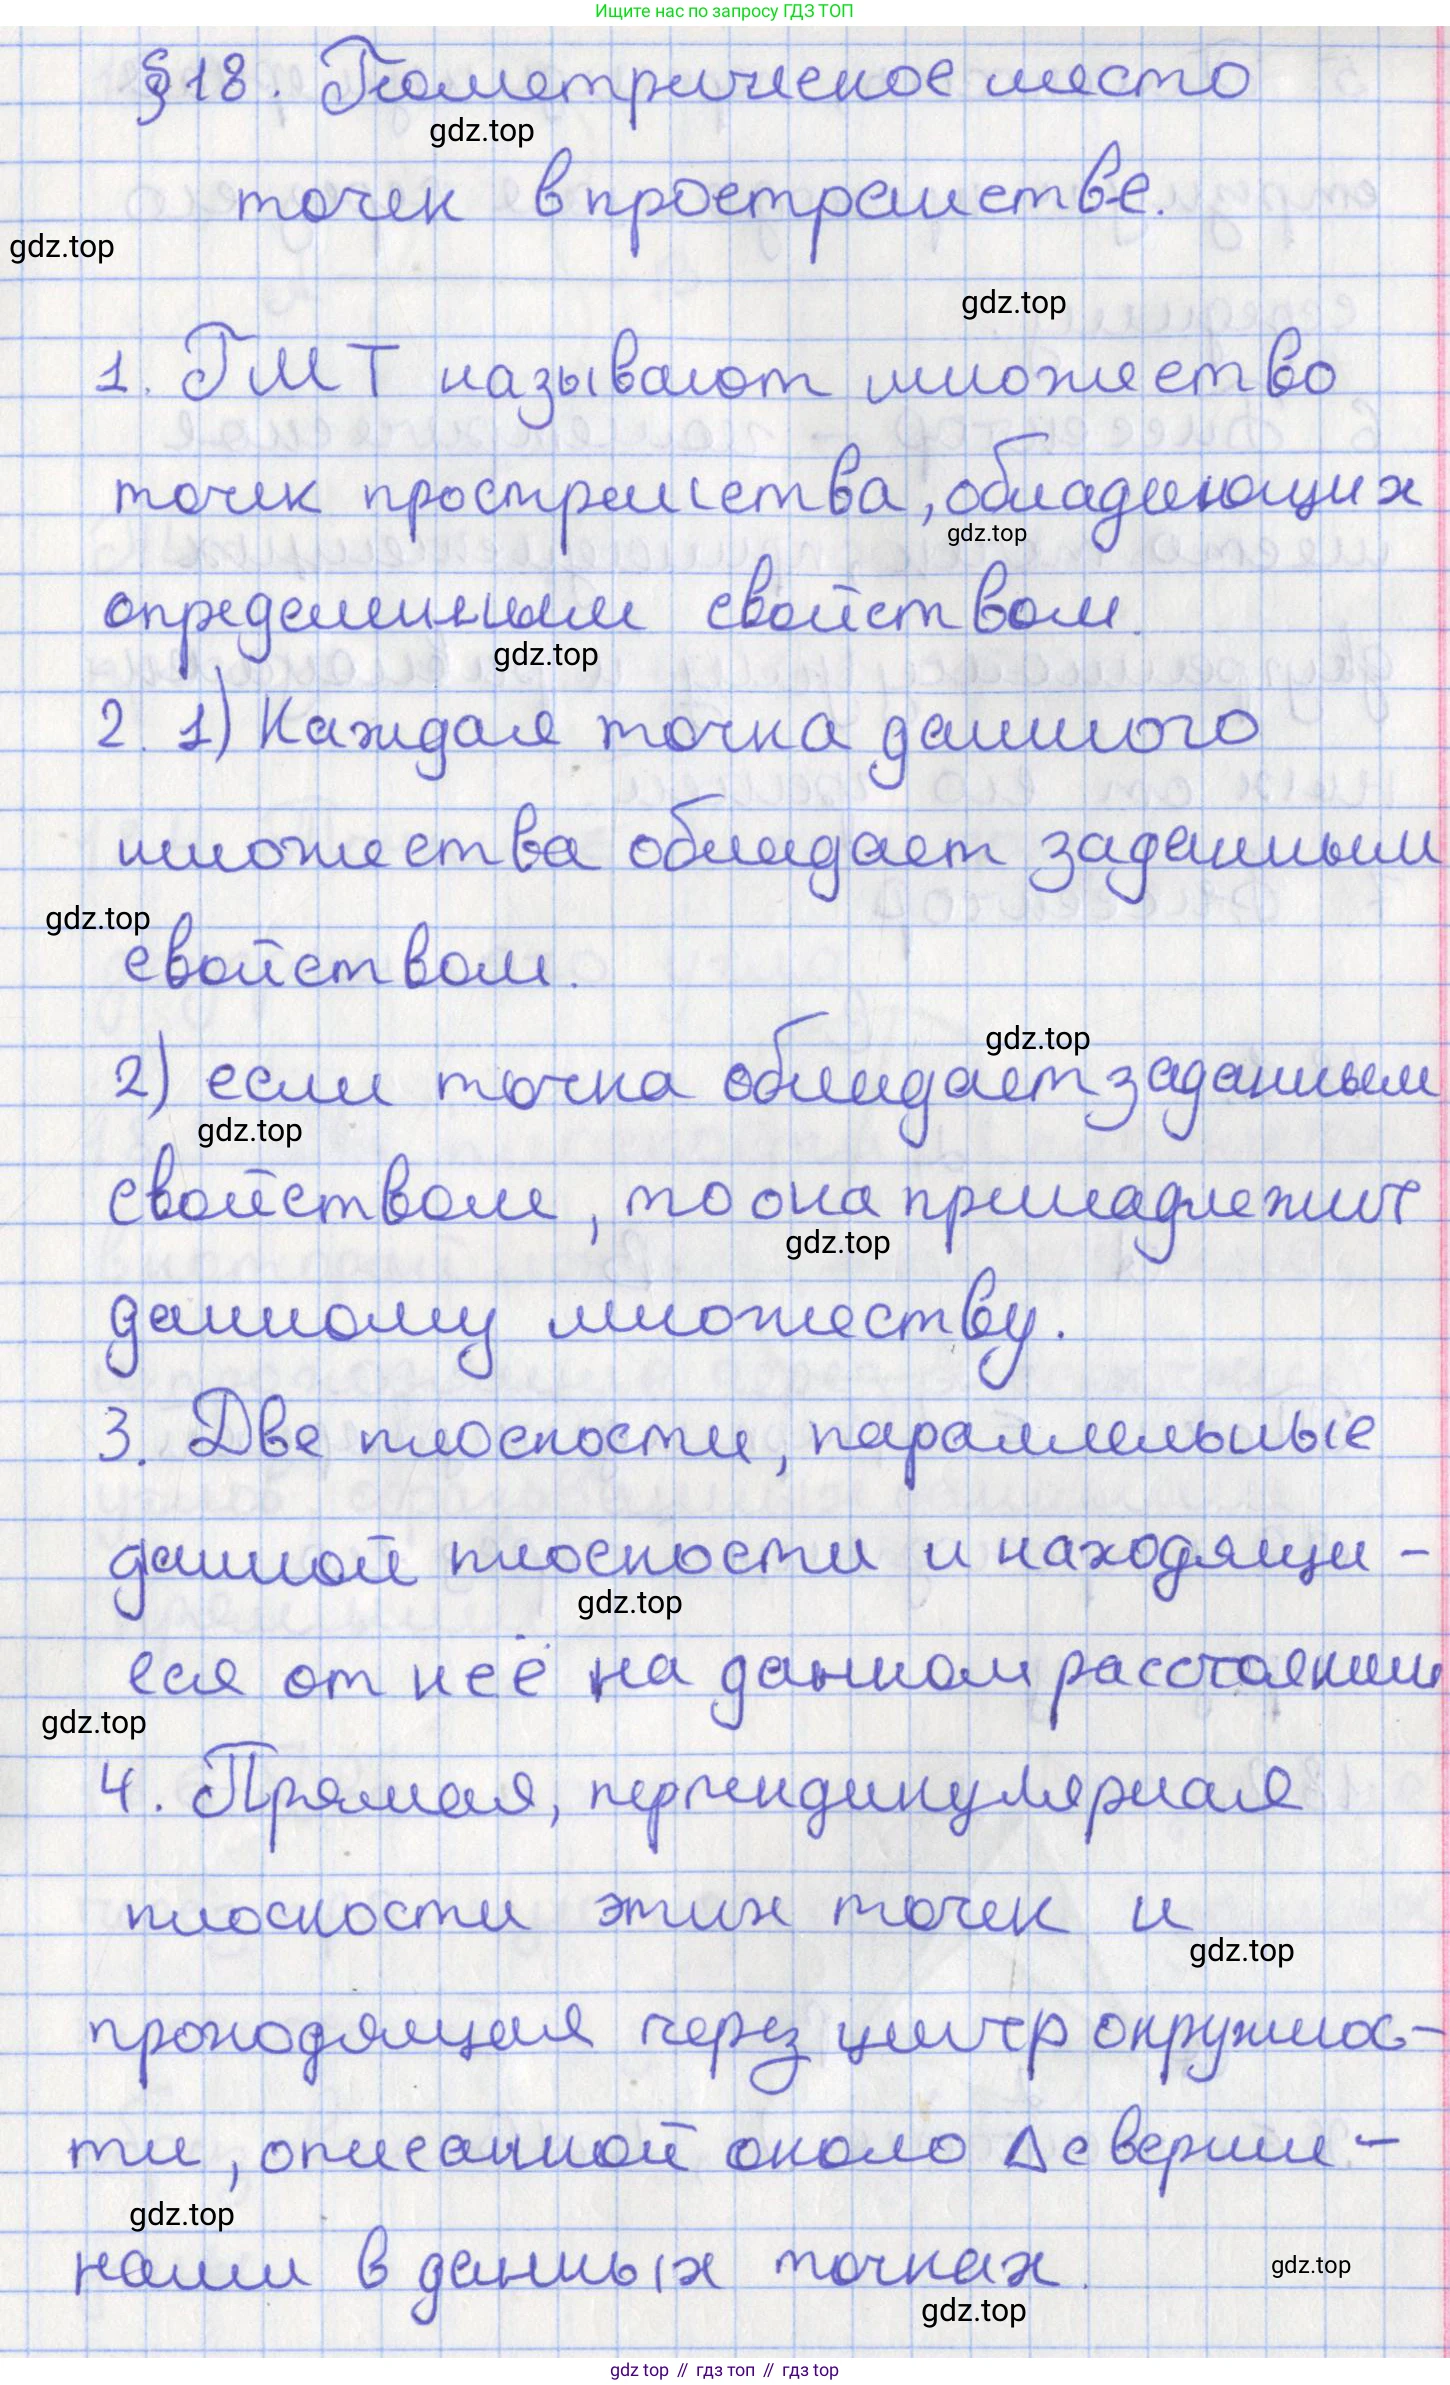 Ищите нас по запросу ГДЗ ТОП
§18. Геометрическое место
gdz.top
точек в пространстве.
gdz.top
gdz.top
1. ГМТ называют множество
точек пространства, обладающих
gdz.top
определенным свойством.
gdz.top
2. 1) Каждая точка данного
множества обладает заданным
gdz.top
свойством.
gdz.top
2) если точка обладает заданным
gdz.top
свойством, то она принадлежит
gdz.top
данному множеству.
3. Две плоскости, параллельные
данной плоскости и находящи-
gdz.top
еся от неё на данном расстоянии
gdz.top
4. Прямая, перпендикулярная
плоскости этих точек и
gdz.top
проходящая через центр окружнос-
ти, описанной около Δ с верши-
gdz.top
нами в данных точках.
gdz.top
gdz.top
gdz top // гдз топ // гдз top